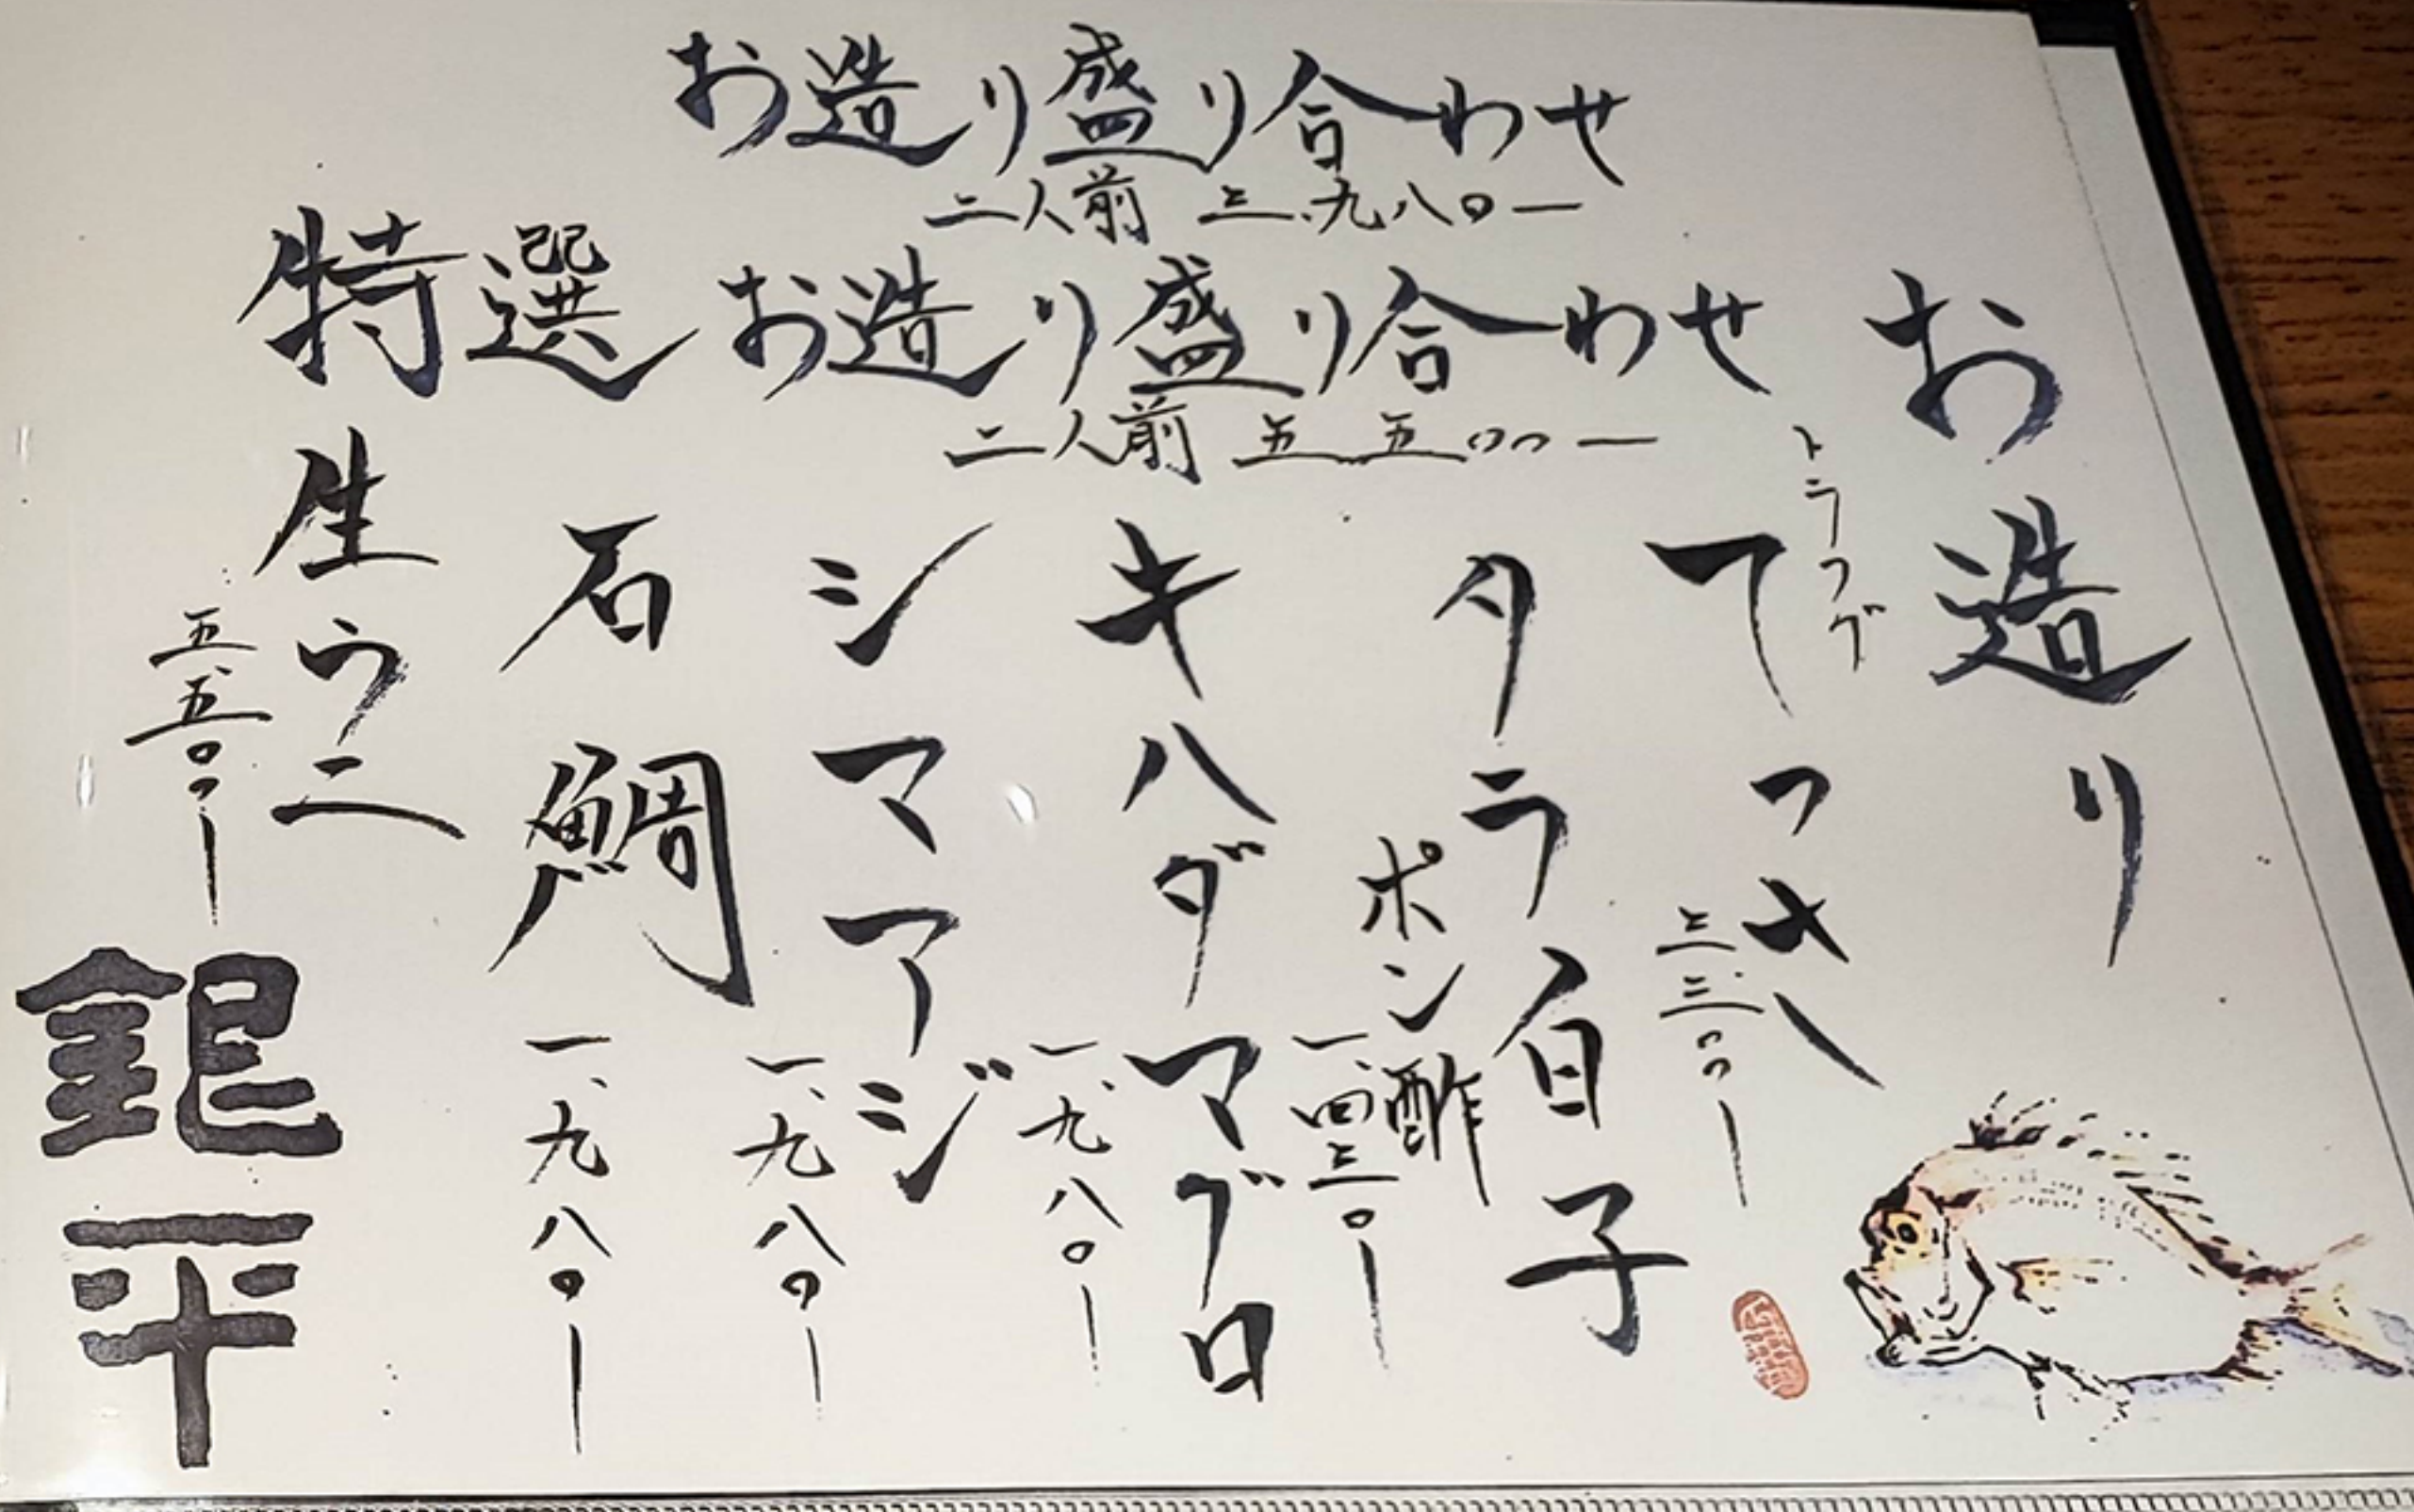 お造り盛り合わせ
二人前 三、九八〇ー
特選 お造り盛り合わせ
二人前 五五〇〇ー
お造り
トラフグ
てっさ
三三〇〇ー
タラ白子
ポン酢
一、四三〇ー
キハダマグロ
一、九八〇ー
シマアジ
一、九八〇ー
石鯛
一、九八〇ー
生ウニ
五、五〇〇ー
銀平